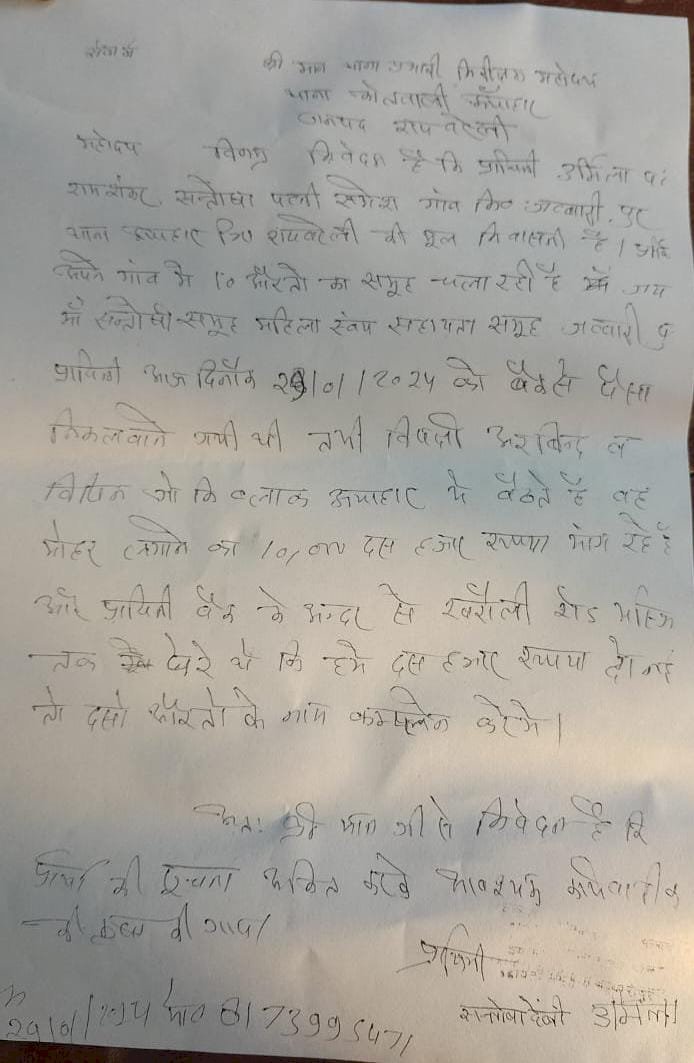 सेवा में
श्री मान थाना प्रभारी निरीक्षक महोदय
थाना कोतवाली ऊँचाहार
जनपद रायबरेली
महोदय विनम्र निवेदन है कि प्रार्थिनी उर्मिला प.
रामशंकर, सन्तोषा पत्नी गांव जव्वारी पुर
थाना ऊचाहार रायबरेली की मूल निवासनी है। और
अपने गांव मे 10 औरतो का समूह चला रही है जय
माँ सन्तोषी समूह महिला स्वंय सहायता समूह जव्वारी पु
प्रार्थिनी आज दिनाँक 29/01/2024 को बैंक से पैसा
निकलवाने गयी थी तभी विपक्षी अरविन्द व
विपिन जो कि ब्लाक ऊचाहार मे बैठते है वह
मोहर लगाने का 10,000 दस हजार रूपया मांग रहे है
और प्रार्थिनी बैंक के अन्दर से खरौली रोड
तक घेरे थे कि हमे दस हजार रूपया दो नही
तो दसो औरतो के नाम कम्पलेन करेगे।
अतः श्री मान जी से निवेदन है कि
प्रार्थी की सूचना अंकित करके आवश्यक
की कृपा की जाय।
प्रार्थिनी
सन्तोषा देवी उर्मिला
29/01/2024 मो० 6173995471